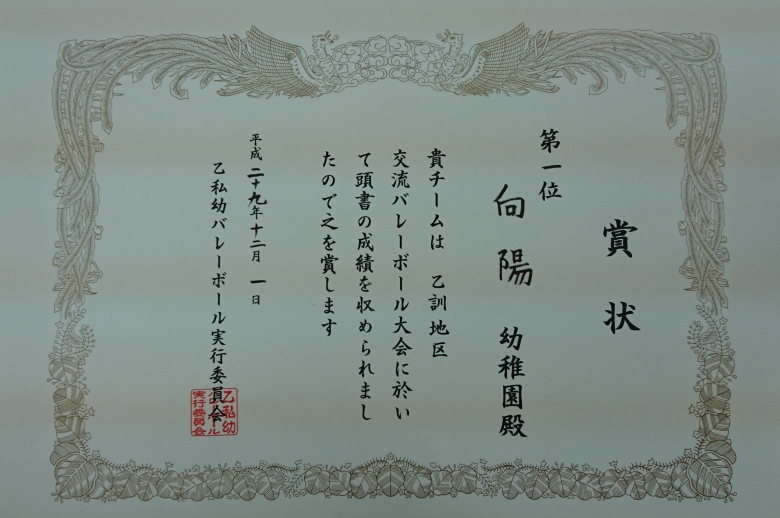 賞状
第一位
向陽幼稚園殿
貴チームは 乙訓地区
交流バレーボール大会に於い
て頭書の成績を収められまし
たので之を賞します
平成二十九年十二月一日
乙私幼バレーボール実行委員会
乙私幼
実行委員会